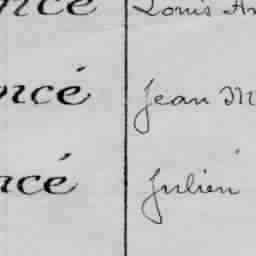 ncé Louis
ncé Jean M
ncé Julien